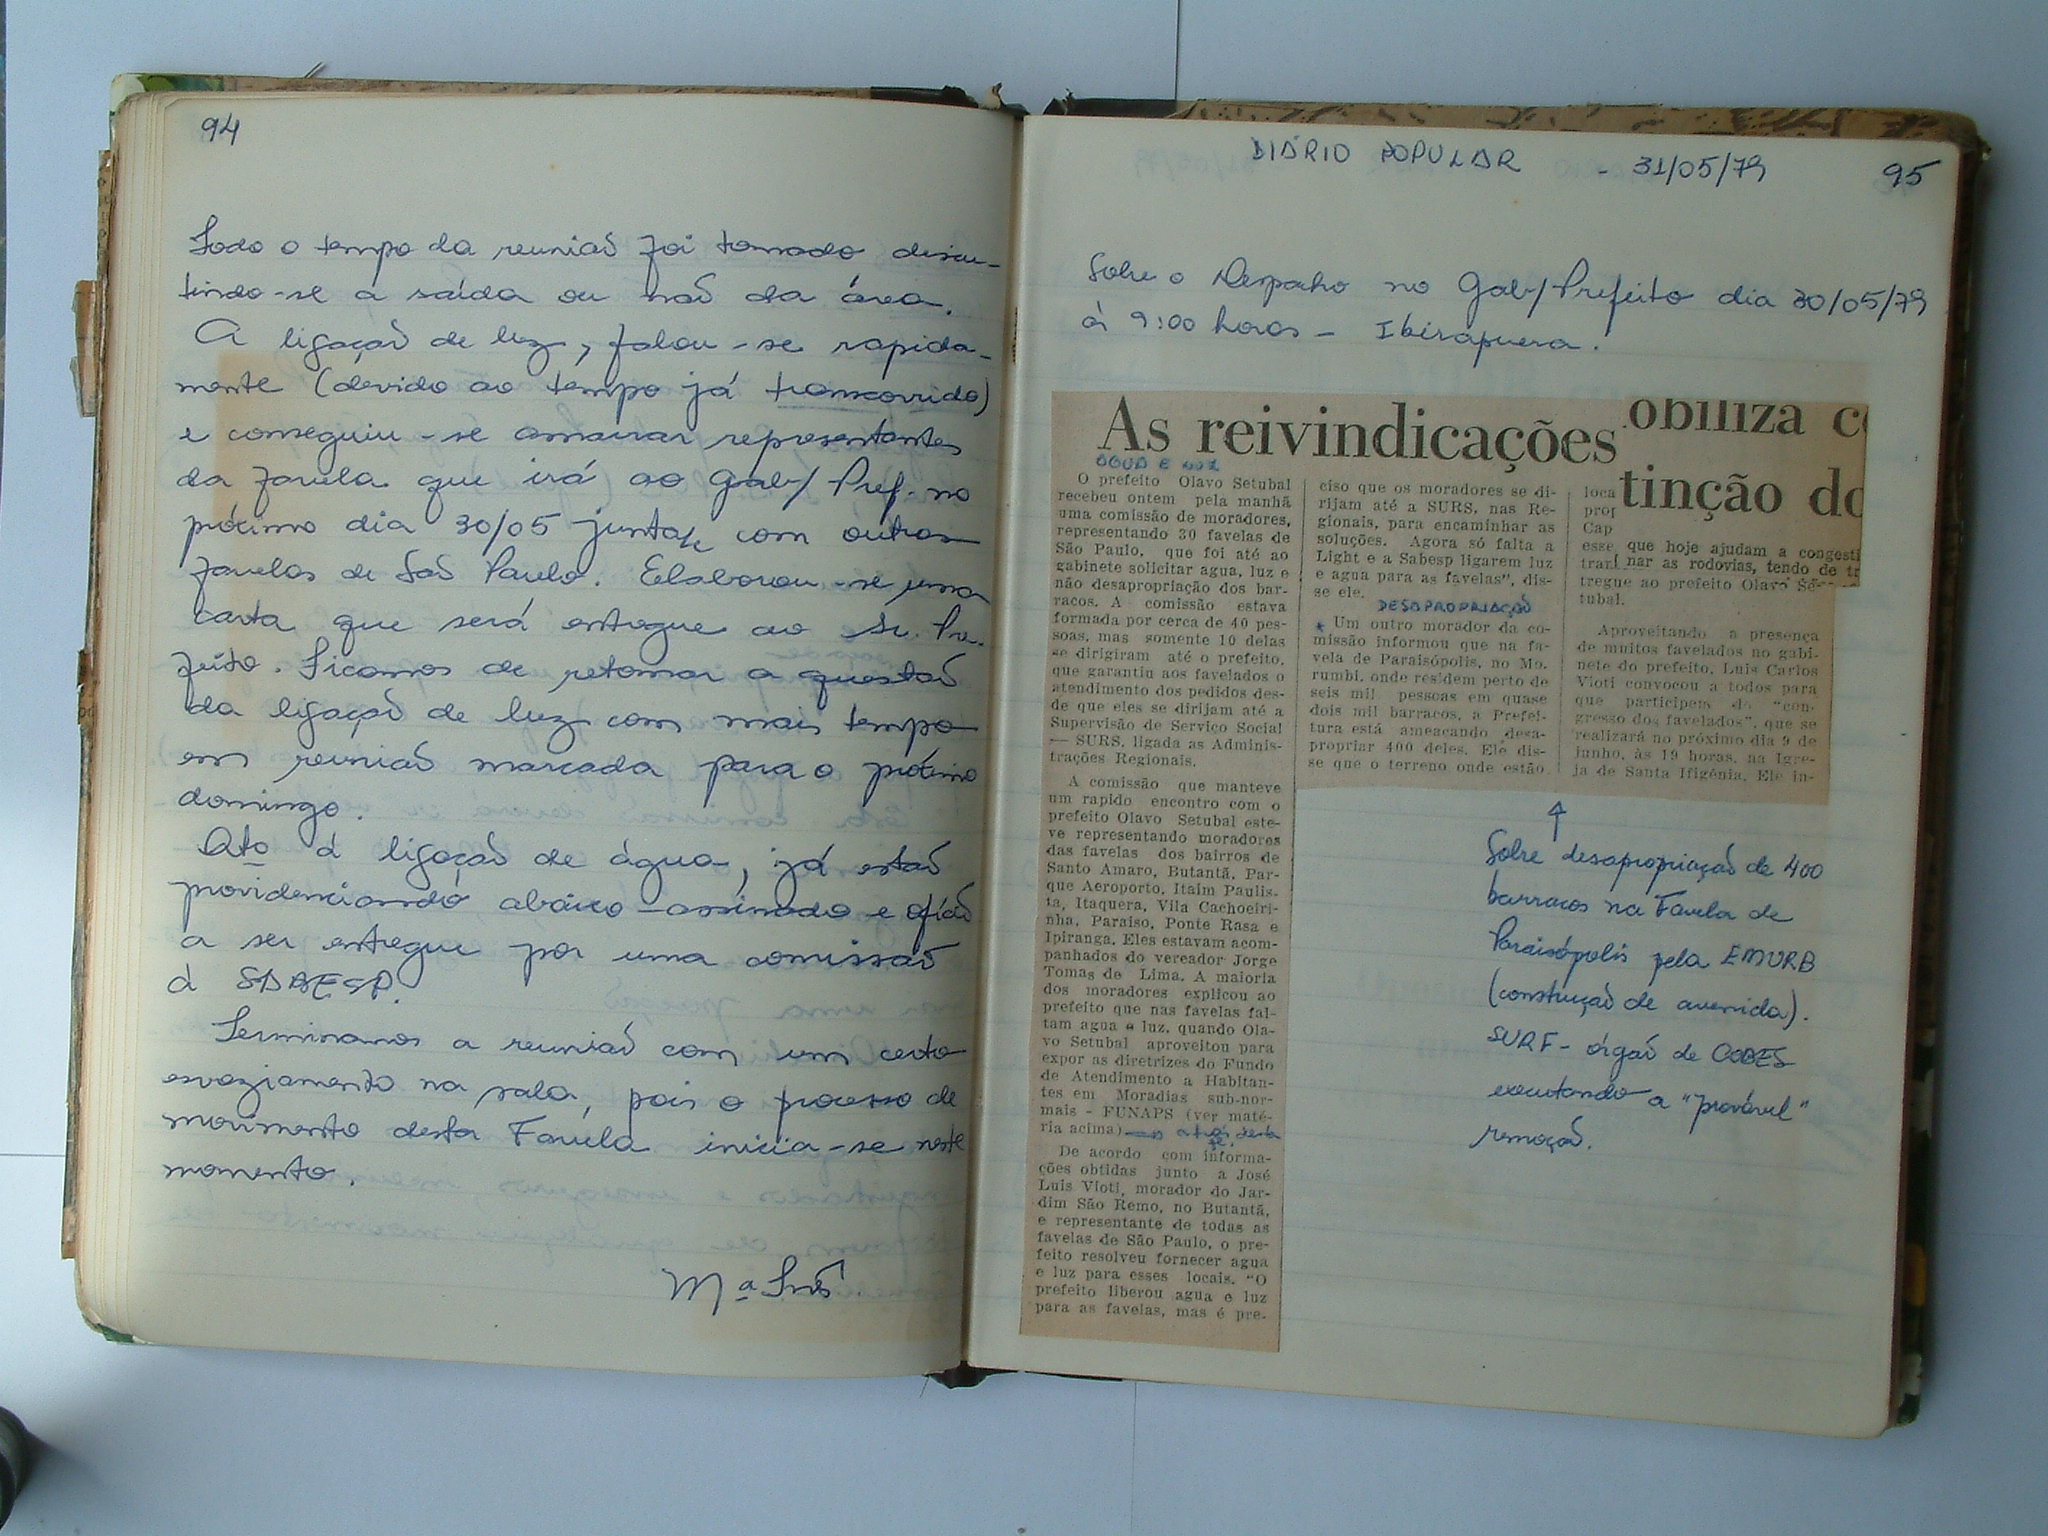 94
Todo o tempo da reunião foi tomado discu-
tindo-se a saída ou não da área.
A ligação de luz, falou-se rapida-
mente (devido ao tempo já transcorrido)
e conseguiu-se amarrar representantes
da favela que irá ao Gab/ Pref. no
próximo dia 30/05 junta/e com outras
favelas de São Paulo. Elaborou-se uma
carta que será entregue ao Sr. Pre-
feito. Ficamos de retomar a questão
da ligação de luz com mais tempo
em reunião marcada para o próximo
domingo.
Qto à ligação de água, já estão
providenciando abaixo-assinado e ofício
a ser entregue por uma comissão
à SABESP.
Terminamos a reunião com um certo
esvaziamento na sala, pois o processo de
movimento desta Favela inicia-se neste
momento.
Mª Inês
DIÁRIO POPULAR - 31/05/79
95
Sobre o Despacho no Gab/Prefeito dia 30/05/79
às 9:00 horas - Ibirapuera.
As reivindicações
AGUA E LUZ
O prefeito Olavo Setubal
recebeu ontem pela manhã
uma comissão de moradores,
representando 30 favelas de
São Paulo, que foi até ao
gabinete solicitar agua, luz e
não desapropriação dos bar-
racos. A comissão estava
formada por cerca de 40 pes-
soas, mas somente 10 delas
se dirigiram até o prefeito,
que garantiu aos favelados o
atendimento dos pedidos des-
de que eles se dirijam até a
Supervisão de Serviço Social
— SURS, ligada as Adminis-
trações Regionais.
A comissão que manteve
um rapido encontro com o
prefeito Olavo Setubal este-
ve representando moradores
das favelas dos bairros de
Santo Amaro, Butantã, Par-
que Aeroporto, Itaim Paulis-
ta, Itaquera, Vila Cachoeiri-
nha, Paraiso, Ponte Rasa e
Ipiranga. Eles estavam acom-
panhados do vereador Jorge
Tomas de Lima. A maioria
dos moradores explicou ao
prefeito que nas favelas fal-
tam agua e luz, quando Ola-
vo Setubal aproveitou para
expor as diretrizes do Fundo
de Atendimento a Habitan-
tes em Moradias sub-nor-
mais - FUNAPS (ver maté-
ria acima) atrás desta
De acordo com informa-
ções obtidas junto a José
Luis Vioti, morador do Jar-
dim São Remo, no Butantã,
e representante de todas as
favelas de São Paulo, o pre-
feito resolveu fornecer agua
e luz para esses locais. "O
prefeito liberou agua e luz
para as favelas, mas é pre-
ciso que os moradores se di-
rijam até a SURS, nas Re-
gionais, para encaminhar as
soluções. Agora só falta a
Light e a Sabesp ligarem luz
e agua para as favelas", dis-
se ele.
DESAPROPRIAÇÃO
* Um outro morador da co-
missão informou que na fa-
vela de Paraisópolis, no Mo-
rumbi, onde residem perto de
seis mil pessoas em quase
dois mil barracos, a Prefei-
tura está ameacando desa-
propriar 400 deles. Ele dis-
se que o terreno onde estão
loca
prop
Cap
esse
tran
tregue ao prefeito Olavo Se-
tubal.
Aproveitando a presença
de muitos favelados no gabi-
nete do prefeito, Luis Carlos
Vioti convocou a todos para
que participem do "con-
gresso dos favelados", que se
realizará no próximo dia 9 de
junho, às 19 horas, na Igre-
ja de Santa Ifigênia. Ele in-
obiliza co
tinção do
que hoje ajudam a congesti
nar as rodovias, tendo de tr
↑
Sobre desapropriação de 400
barracos na Favela de
Paraisópolis pela EMURB
(constução de avenida).
SURF - órgão de COBES
executando a "provável"
remoção.